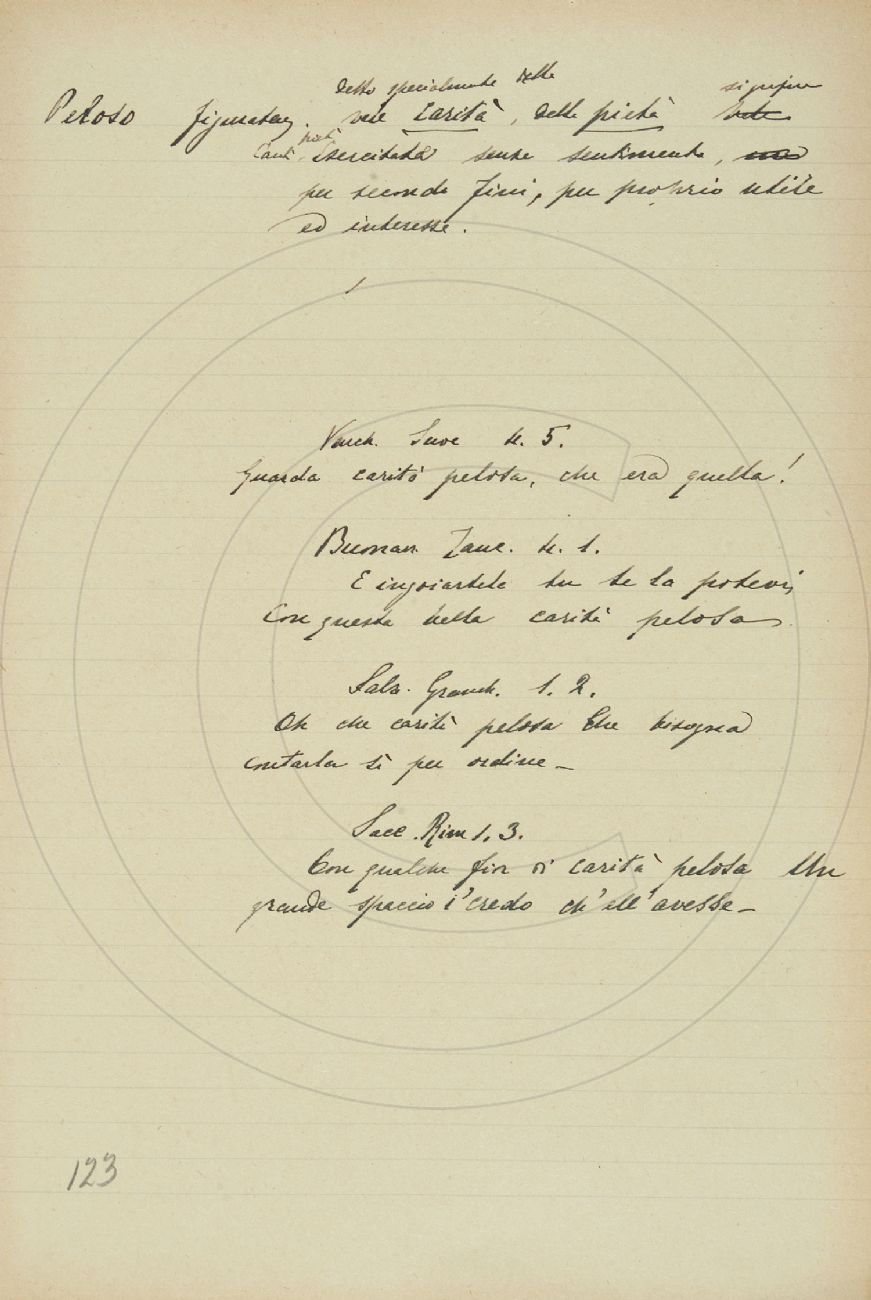 detto specialmente della
Peloso figuratam. vale carità, della pietà significa
pietà
Carit. Esercitata senza sentimento,
per secondi fini, per proprio utile
ed interesse.
Varch. Suoc. 4. 5.
Guarda carità pelosa, che era quella!
Buonar. Tanc. 4. 1.
E ingoiartela tu te la potevi
Con questa bella carità pelosa
Salv. Granch. 1. 2.
Oh che carità pelosa Che bisogna
contarla sì per ordine _
Sacc. Rim 1. 3.
Con qualche fin di carità pelosa Un
grande spaccio i' credo ch' ell' avesse _
123